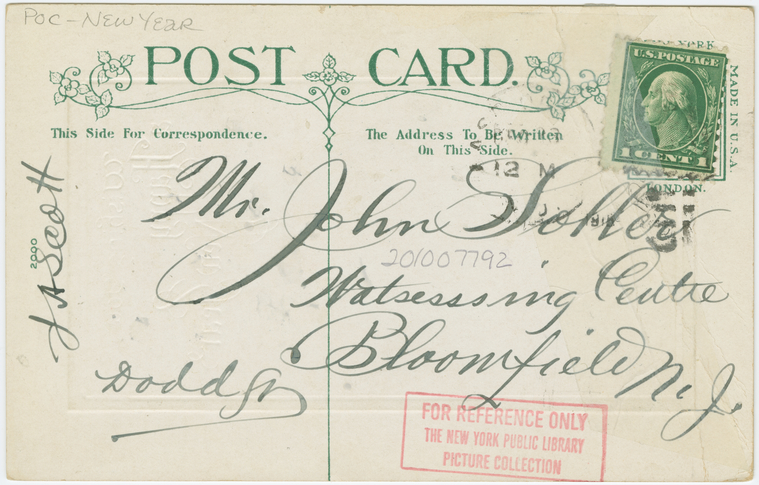 POC - NEW YEAR
POST CARD.
NEW YORK
U.S. POSTAGE
1 CENT 1
MADE IN U.S.A.
LONDON.
This Side For Correspondence.
The Address To Be Written
On This Side.
12 M
Mr. John
201007792
Watsesssing Centre
Bloomfield N. J.
2000
J A Scott
Dodd St
FOR REFERENCE ONLY
THE NEW YORK PUBLIC LIBRARY
PICTURE COLLECTION